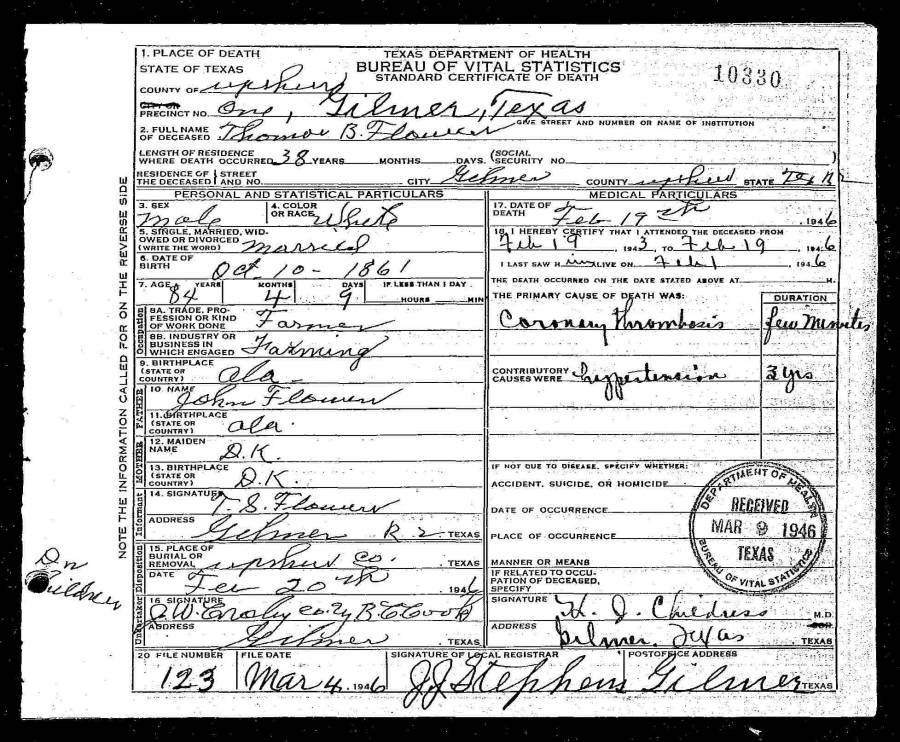 1. PLACE OF DEATH
STATE OF TEXAS
TEXAS DEPARTMENT OF HEALTH
BUREAU OF VITAL STATISTICS
STANDARD CERTIFICATE OF DEATH
10330
COUNTY OF upshur
CITY OR
PRECINCT NO. One, Gilmer, Texas
GIVE STREET AND NUMBER OR NAME OF INSTITUTION
2. FULL NAME OF DECEASED Thomas B. Flowers
LENGTH OF RESIDENCE WHERE DEATH OCCURRED 38 YEARS MONTHS DAYS. (SOCIAL SECURITY NO. )
RESIDENCE OF THE DECEASED { STREET AND NO. CITY Gilmer COUNTY upshur STATE Tex R2
PERSONAL AND STATISTICAL PARTICULARS
3. SEX Male
4. COLOR OR RACE White
5. SINGLE, MARRIED, WIDOWED OR DIVORCED (WRITE THE WORD) Married
6. DATE OF BIRTH Oct. 10- 1861
7. AGE YEARS MONTHS DAYS IF LESS THAN 1 DAY
84 4 9 HOURS MIN
Occupation
8A. TRADE, PROFESSION OR KIND OF WORK DONE Farmer
8B. INDUSTRY OR BUSINESS IN WHICH ENGAGED Farming
9. BIRTHPLACE (STATE OR COUNTRY) Ala-
FATHER
10. NAME John Flowers
11. BIRTHPLACE (STATE OR COUNTRY) Ala.
MOTHER
12. MAIDEN NAME D.K.
13. BIRTHPLACE (STATE OR COUNTRY) D.K.
Informant
14. SIGNATURE T. S. Flowers
ADDRESS Gilmer R 2. TEXAS
Disposition
15. PLACE OF BURIAL OR REMOVAL upshur co. , TEXAS
DATE Feb 20th 1946
Undertaker
16. SIGNATURE
ADDRESS Gilmer , TEXAS
MEDICAL PARTICULARS
17. DATE OF DEATH Feb 19th , 1946
18. I HEREBY CERTIFY THAT I ATTENDED THE DECEASED FROM
Feb 19 , 1943, TO Feb 19 , 1946
I LAST SAW H im ALIVE ON Feb 1 1946
THE DEATH OCCURRED ON THE DATE STATED ABOVE AT M.
THE PRIMARY CAUSE OF DEATH WAS:
DURATION
Coronary Thrombosis few Minutes
CONTRIBUTORY CAUSES WERE hypertension 3 yrs
IF NOT DUE TO DISEASE, SPECIFY WHETHER:
ACCIDENT, SUICIDE, OR HOMICIDE
DATE OF OCCURRENCE
PLACE OF OCCURRENCE
MANNER OR MEANS
IF RELATED TO OCCUPATION OF DECEASED, SPECIFY
SIGNATURE H. J. Childress M.D.
ADDRESS Gilmer, Texas , TEXAS
DEPARTMENT OF HEALTH
RECEIVED
MAR 9 1946
TEXAS
BUREAU OF VITAL STATISTICS
20 FILE NUMBER
123
FILE DATE
Mar 4, 1946
SIGNATURE OF LOCAL REGISTRAR
J J Stephens
POSTOFFICE ADDRESS
Gilmer TEXAS
NOTE THE INFORMATION CALLED FOR ON THE REVERSE SIDE